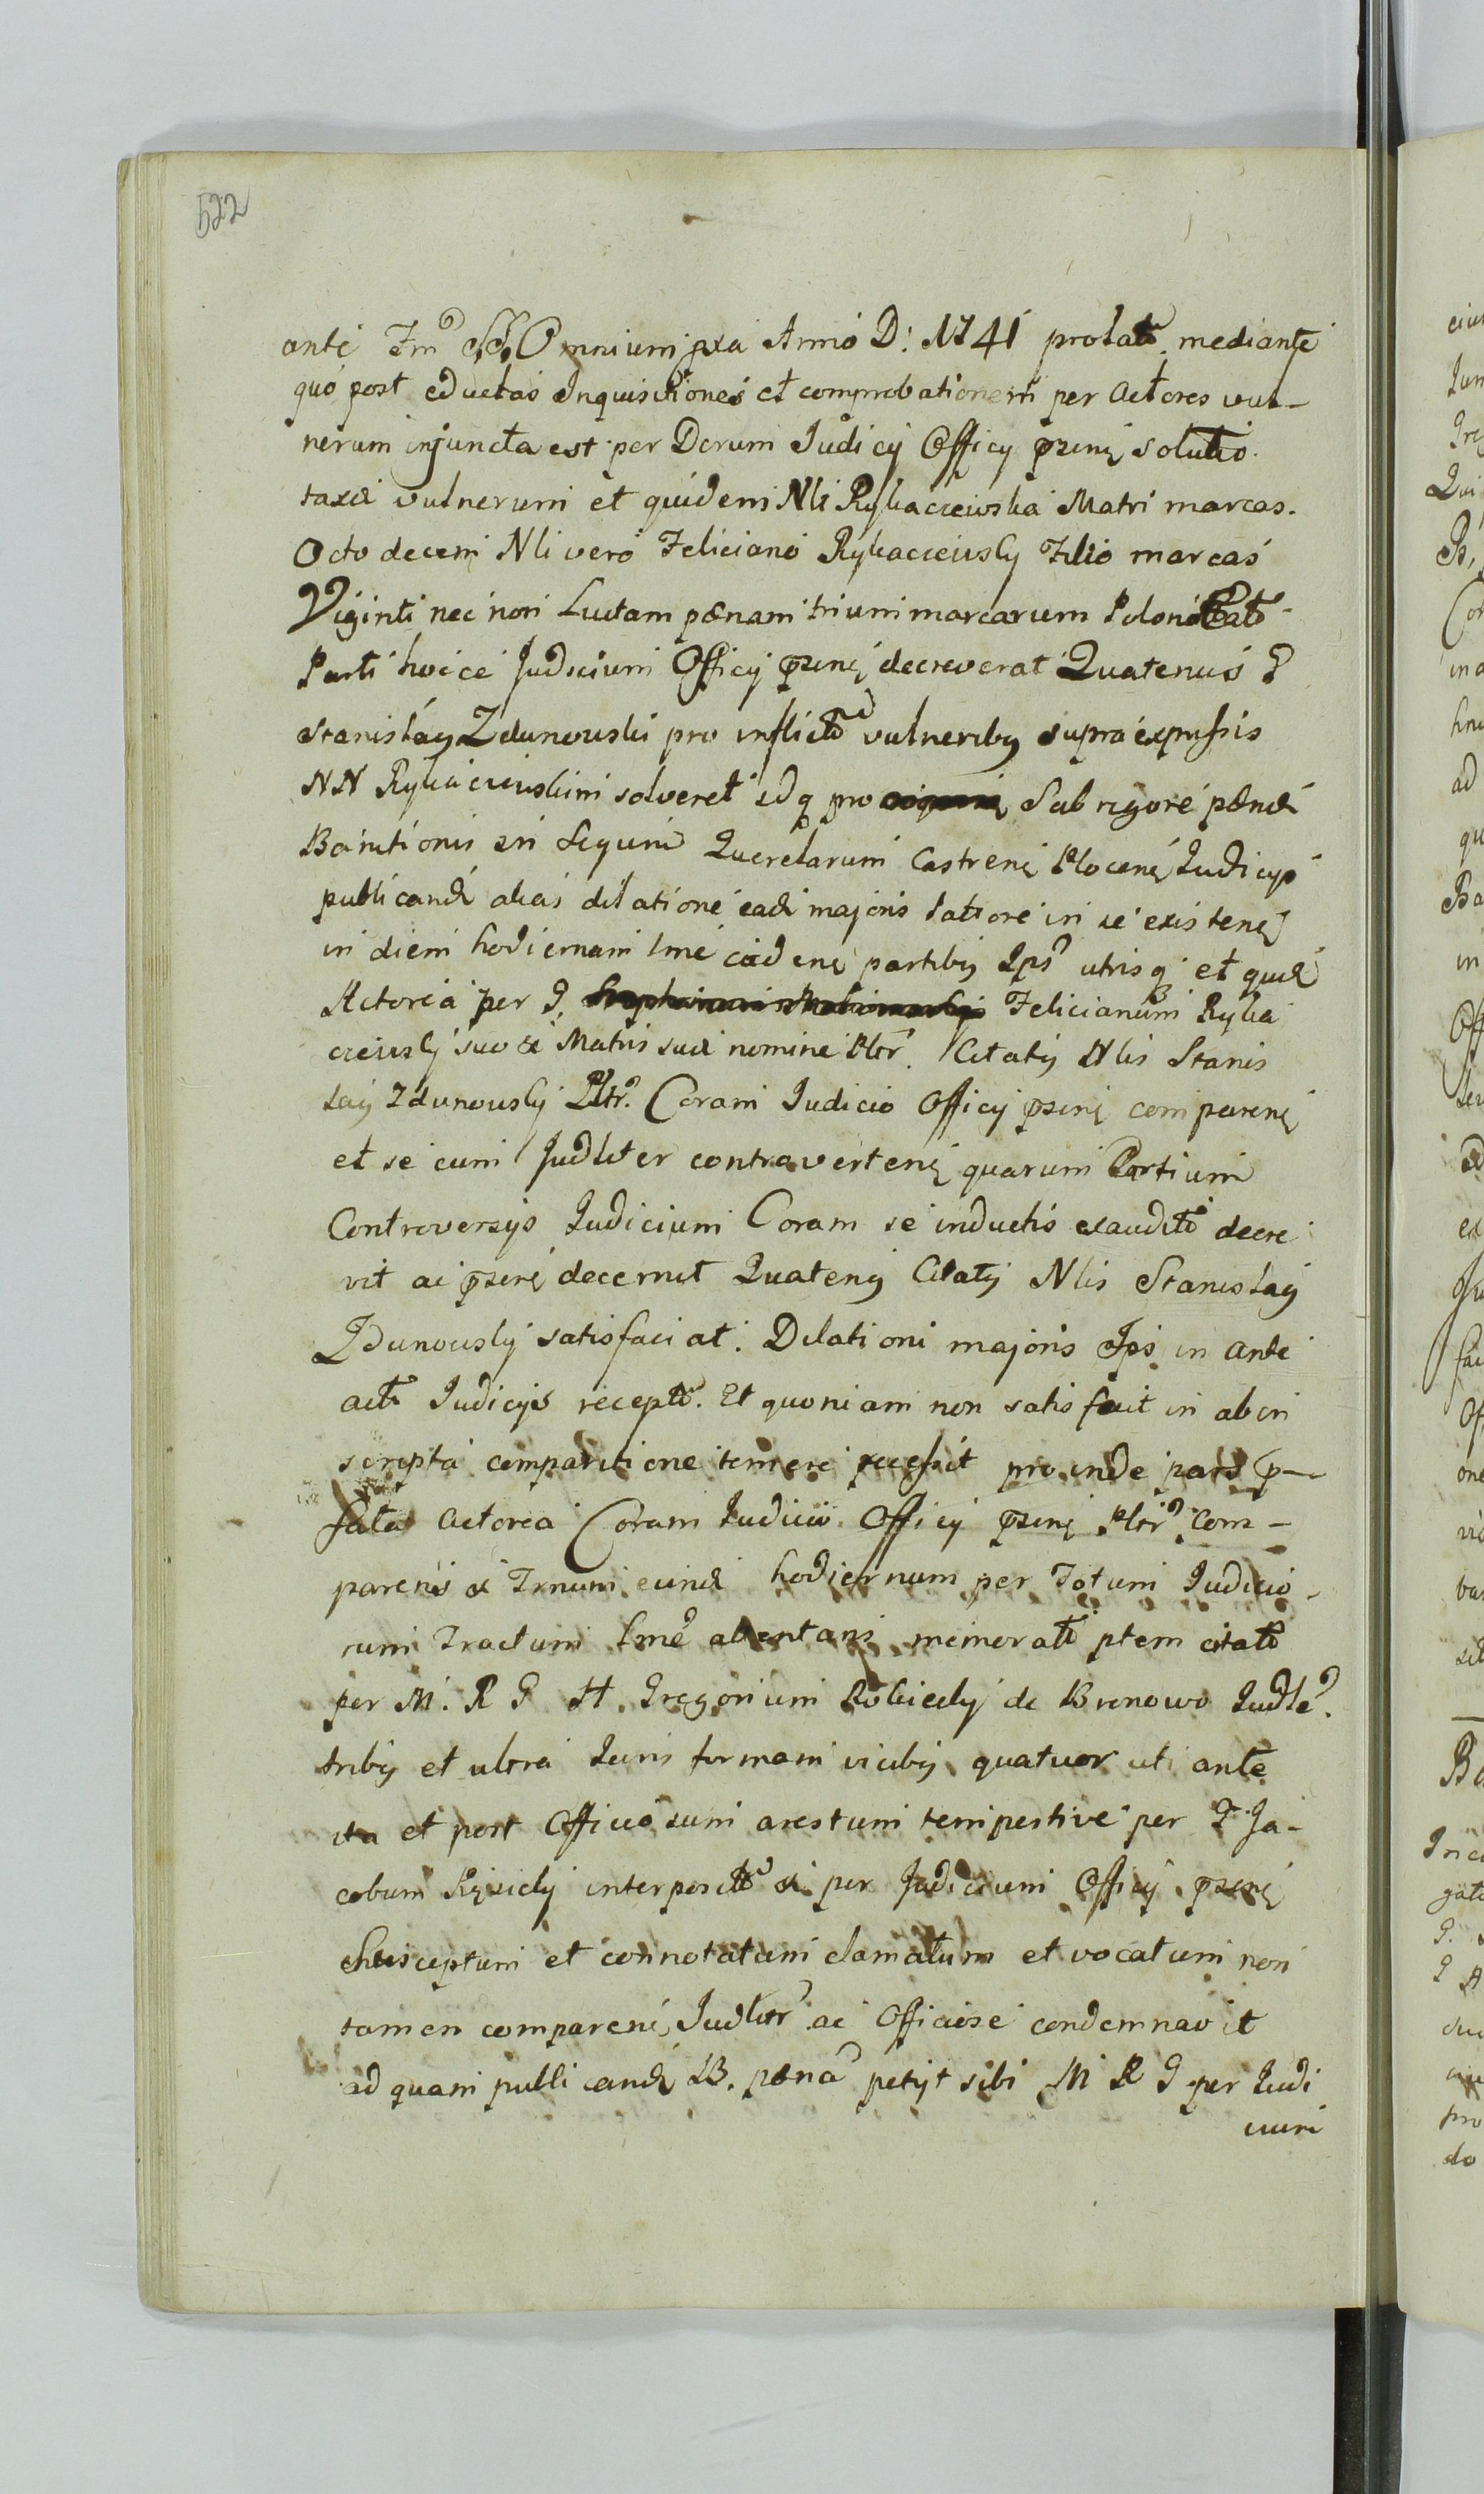 522
ante Fm SS. Omnium pxa Anno D: 1741 prolatο mediante
quo post eductas Inquisitiones et comprobationem per Actores vul-
nerum injuncta est per Dcrum Judicij Officy pzenς solutio
taxæ vulnerum et quidem Nli Rykaczewska Matri marcas.
Octodecem Nli vero Feliciano Rykaczewsky Filio marcas
Viginti nec non Luctam pænam trium marcarum Polono
Parti hoice Judicium Officij pzenς decreverat Quatenus G
Stanisłaus Zdunowski pro inflictο vulneribς supra expressis
NN Rykaczewskim solveret idq pro Sub rigore pænæ
Banitionis in Sequen Querelarum Castrenς Plocenς Judicijs
publicandæ alias dilatione eadę majoris lattore in se existenς
in diem hodiernam Ime cadenς partibς Ips utrisq et quidę
Actorea per G. Felicianum Ryka
czewsky suo & Matris suæ nomine Pltr. Citatς Nlis Stanis
laus Zdunowsky Pltr. Coram Judicio Officij pzenς comparenς
et se cum Judliter contravertenς quarum Partium
Controversys Judicium Coram se inductis exauditο decre
vit ac pzenς decernit Quatenς Citatς Nlis Stanislaς
Zdunowsky satisfaciat. Dilationi majoris Ips in ante
actο Judicijs receptο. Et quoniam non satis fecit in ab in
scripta comparitione temere recessit pro inde pars p-
fata actorea Coram Judicio Officij pzenς Pltr Com-
parens & Trnum eundę hodiernum per Totum Judicio-
rum Tractum Ime attentans memoratο ptem citatο
per M. R G H. Gregorium Kobiecky de Bronowo Judle.
tribς et ultra Juris formam vicibς quatuor uti ante
ita et post Officiosum arestum tempestive per G Ja-
cobum interpositο & per Judicium Officij pzenς
Susceptum et connotatum clamatum et vocatum non
tamen comparen, Judltr ac Officiose condemnavit
ad quam publicandę B. pæna petijt sibi M R G per Judi
cium